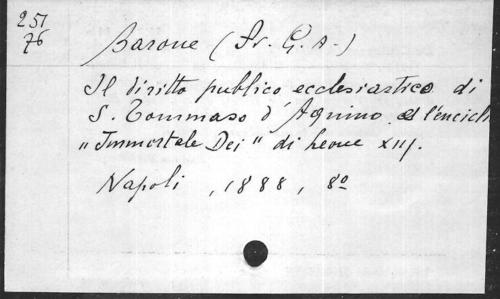 251
76
Barone (Fr. G. A.)
Il diritto publico ecclesiastico di
S. Tommaso d'Aquino et l'encicl
„Immortale Dei" di Leone XIII.
Napoli, 1888, 8º